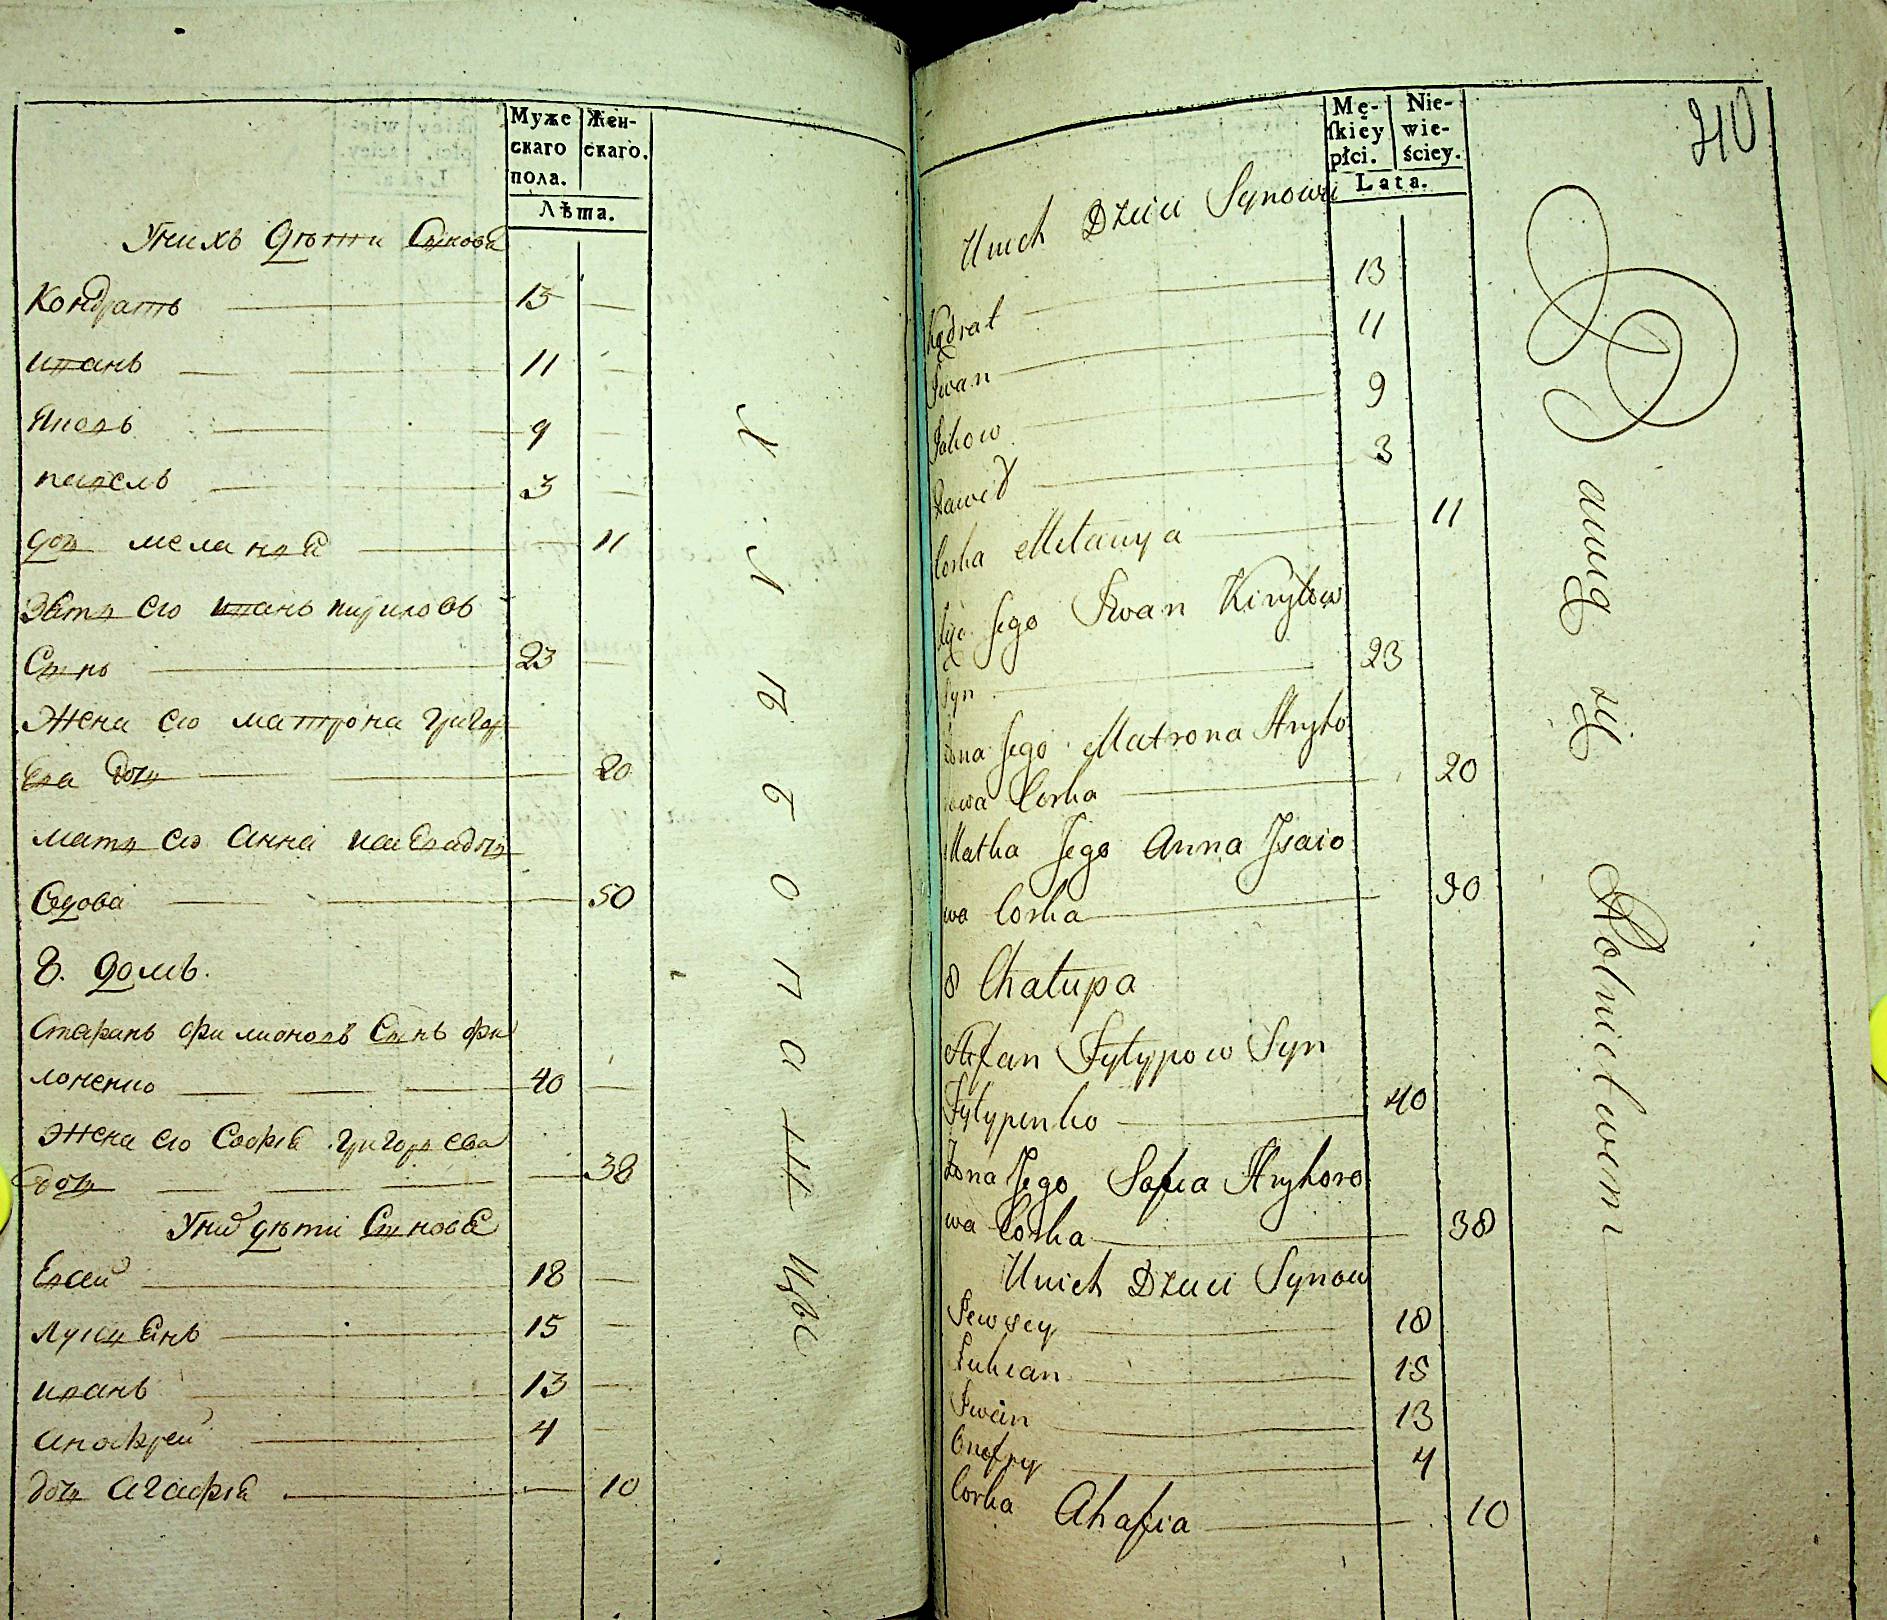 Муже
скаго
пола.
Жен-
скаго.
Лѣта.
У нихъ дѣти Сынова
Кондратъ 13
Иванъ 11
Яковъ 9
3
доч меланія 11
Зять его Иванъ Кириловъ
Сынъ 23
Жена его матрона григор
ева доч 20
мать его Анна Исаева доч
Вдова 50
8. домъ.
Стефанъ филиповъ Сынъ фи
липенко 40
Жена его Софія григорьева
доч 38
У них дѣти Сынова
Евсей 18
лукіянъ 15
иванъ 13
анофрей 4
доч агафія 10
Хлѣбопашцы
Mę-
skiey
płci.
Nie-
wie-
ściey.
Lata.
210
U nich Dzieci Synowie
Kędrat 13
Iwan 11
Jakow 9
Dawid 3
Corka Melanya 11
Zięć Jego Iwan Kirylow
Syn 23
Żona Jego Matrona Hryho
rowa Corka 20
Matka Jego Anna Isaio
wa Corka 50
8 Chałupa
Stefan Fylypow Syn
Fylypenko 40
Żona Jego Sofia Hryhoro
wa Corka 38
U nich Dzieci Synow
Jewsey 18
Łukian 15
Iwan 13
Onofry 4
Corka Ahafia 10
Bawią się Rolnictwem